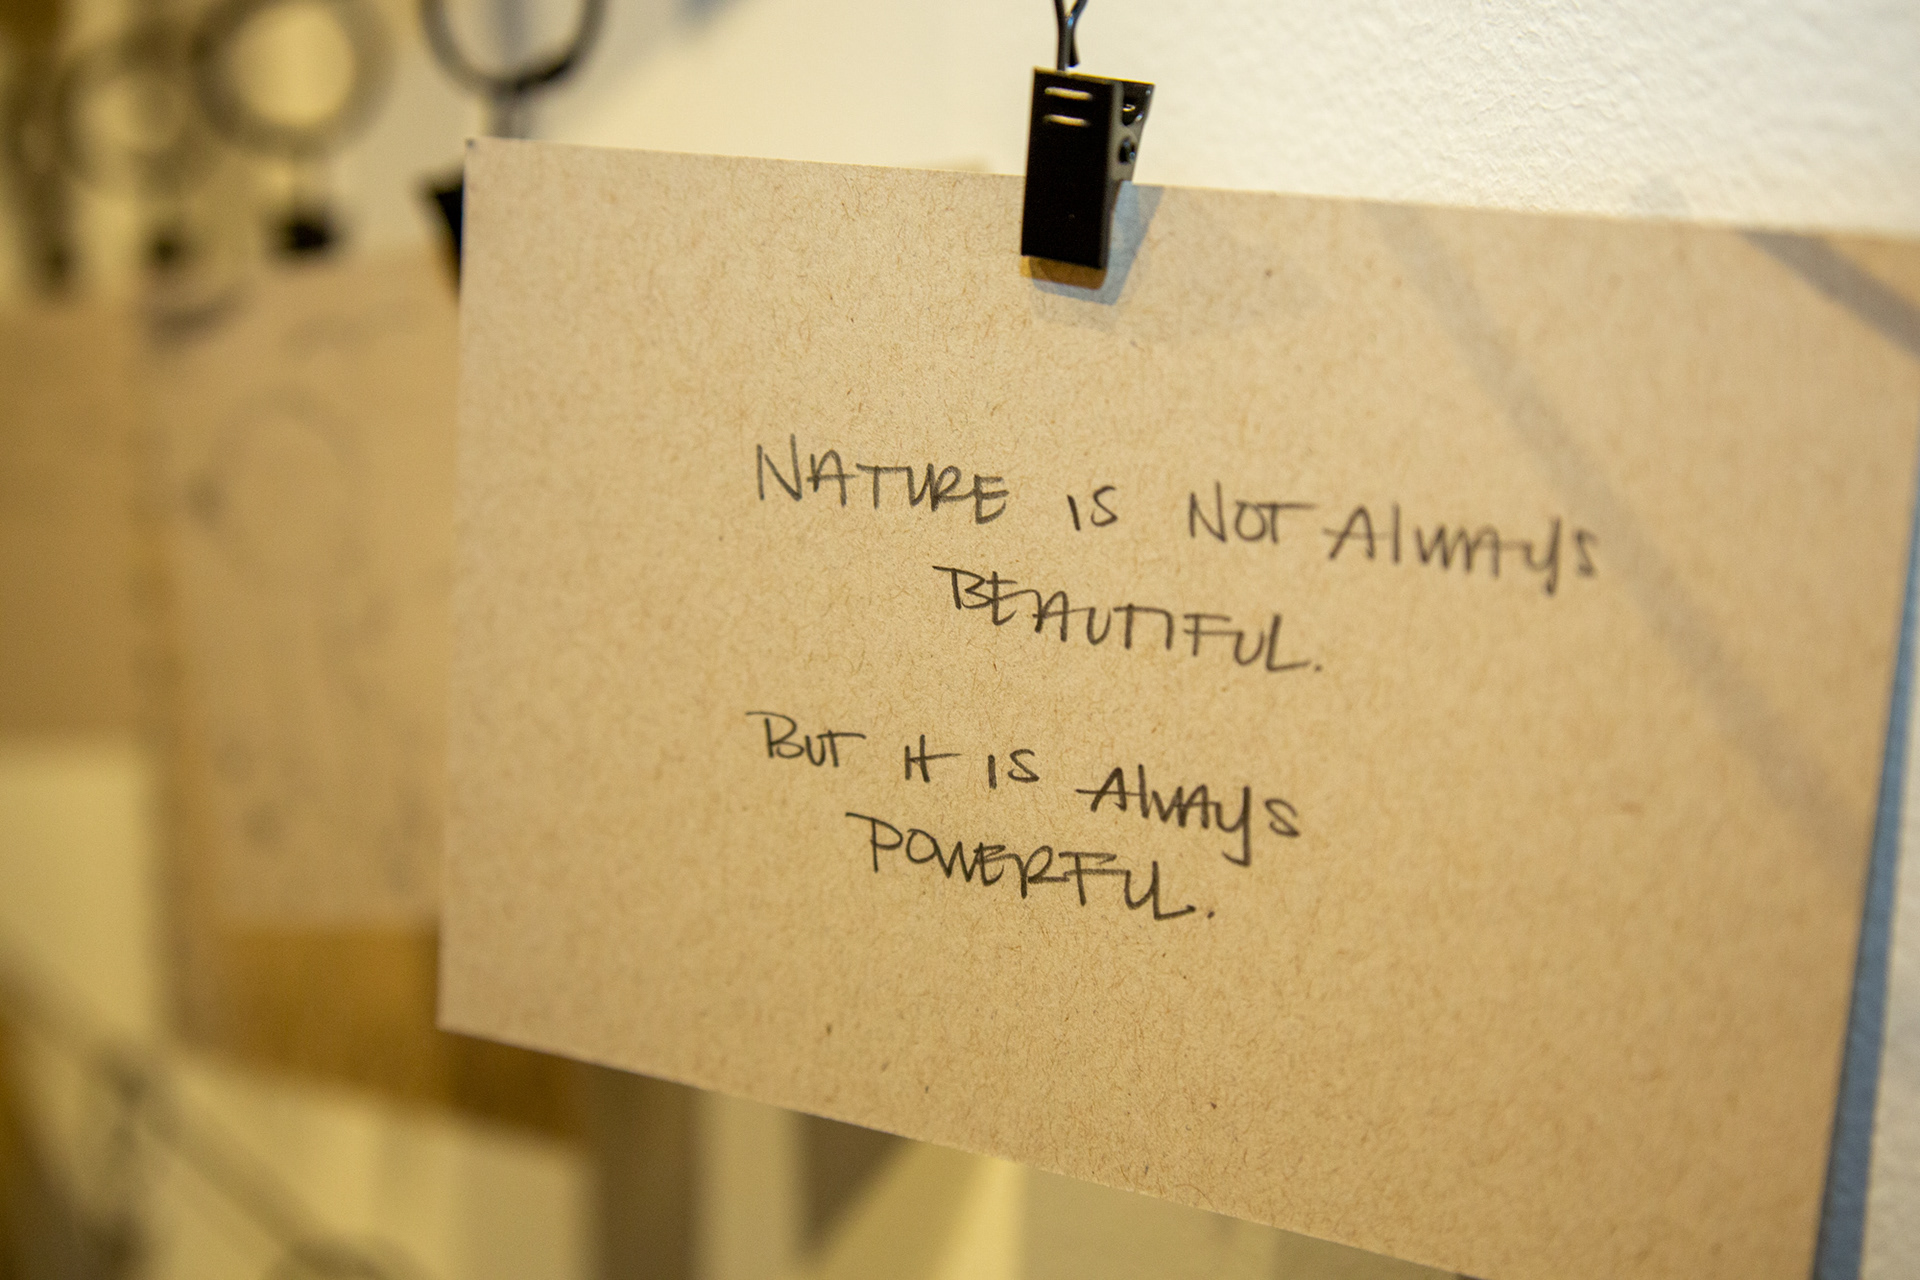 NATURE IS NOT ALWAYS
BEAUTIFUL.
BUT IT IS ALWAYS
POWERFUL.